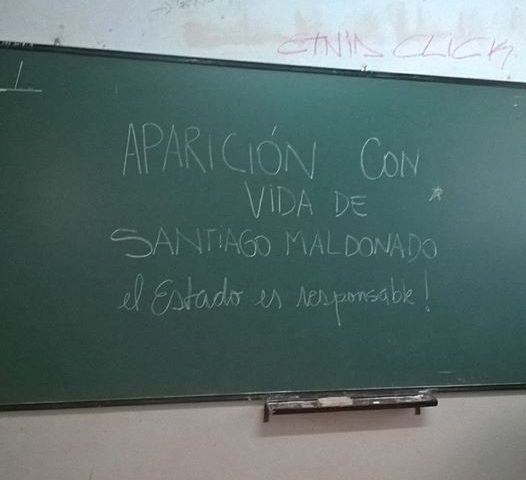 ETNIA CLICK
APARICIÓN CON
VIDA DE
SANTIAGO MALDONADO
el Estado es responsable!